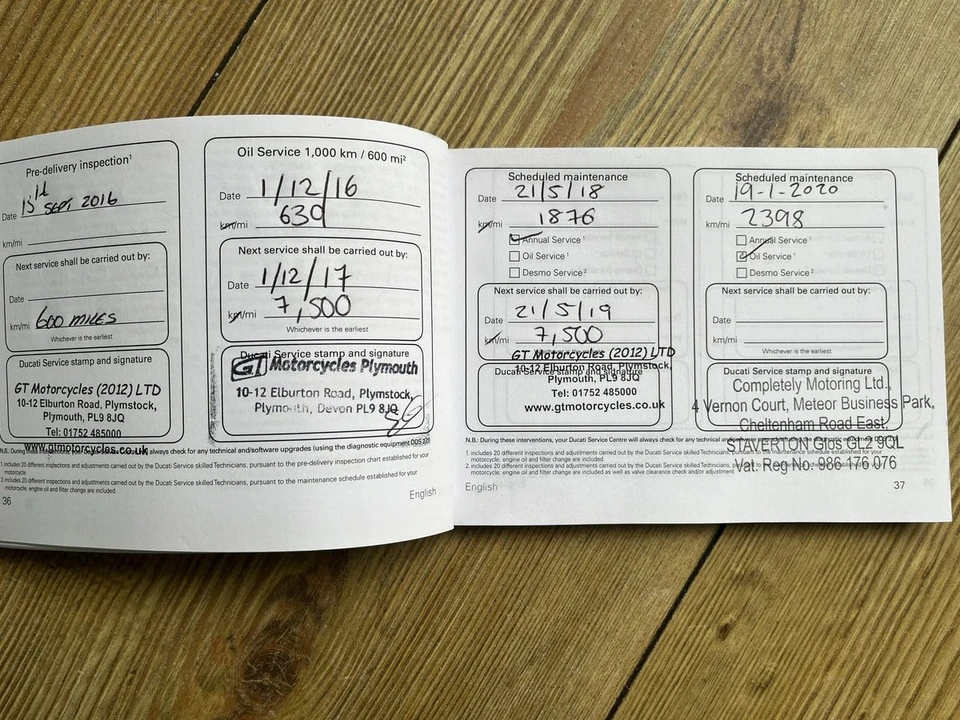 Pre-delivery inspection¹
Date 15th SEPT 2016
km/mi
Next service shall be carried out by:
Date
km/mi 600 MILES
Whichever is the earliest
Ducati Service stamp and signature
GT Motorcycles (2012) LTD
10-12 Elburton Road, Plymstock,
Plymouth, PL9 8JQ
Tel: 01752 485000
www.gtmotorcycles.co.uk
Oil Service 1,000 km / 600 mi²
Date 1/12/16
km/mi 639
Next service shall be carried out by:
Date 1/12/17
km/mi 7,500
Whichever is the earliest
Ducati Service stamp and signature
GT Motorcycles Plymouth
10-12 Elburton Road, Plymstock,
Plymouth, Devon PL9 8JQ
always check for any technical and/software upgrades (using the diagnostic equipment
1 includes 20 different inspections and adjustments carried out by the Ducati Service skilled Technicians, pursuant to the pre-delivery inspection chart established for your
motorcycle.
2 includes 20 different inspections and adjustments carried out by the Ducati Service skilled Technicians, pursuant to the maintenance schedule established for your
motorcycle, engine oil and filter change are included.
36
English
Scheduled maintenance
Date 21/5/18
km/mi 1876
Annual Service ¹
Oil Service ¹
Desmo Service ²
Next service shall be carried out by:
Date 21/5/19
km/mi 7,500
GT Motorcycles (2012) LTD
10-12 Elburton Road, Plymstock,
Ducati Service stamp and signature
Plymouth, PL9 8JQ
Tel: 01752 485000
www.gtmotorcycles.co.uk
Scheduled maintenance
Date 19-1-2020
km/mi 2398
Annual Service ¹
Oil Service ¹
Desmo Service ²
Next service shall be carried out by:
Date
km/mi
Whichever is the earliest
Ducati Service stamp and signature
Completely Motoring Ltd.,
4 Vernon Court, Meteor Business Park,
Cheltenham Road East,
STAVERTON Glos GL2 9QL
Vat. Reg No. 986 176 076
N.B.: During these interventions, your Ducati Service Centre will always check for any technical
1 includes 20 different inspections and adjustments carried out by the Ducati Service skilled Technicians,
motorcycle, engine oil and filter change are included.
2 includes 20 different inspections and adjustments carried out by the Ducati Service skilled Technicians,
motorcycle, engine oil and filter change are included as well as valve clearance check and/or adjustment.
English
37